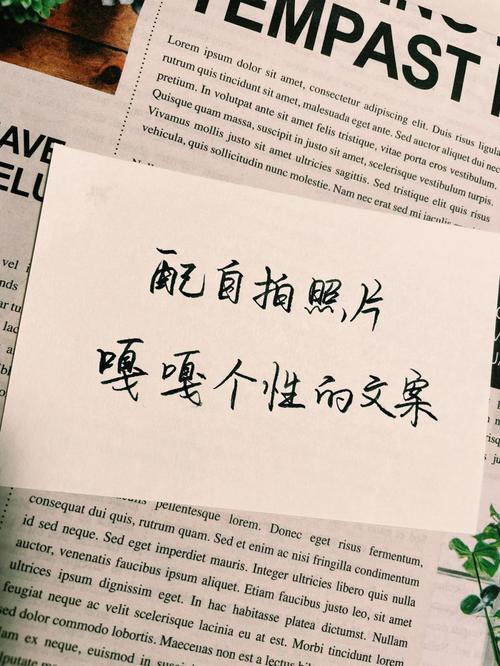 TEMPAST
Lorem ipsum dolor sit amet, consectetur adipiscing elit. Duis risus ligula
rutrum quis tincidunt sit amet, malesuada eget ante. Sed auctor aliquet dui nec
pretium. In volutpat ante sit amet felis tristique, vitae porta eros vestibulum.
Quisque quam massa, suscipit in justo sit amet, scelerisque vestibulum turpis.
Vivamus mollis justo sit amet ultricies sagittis. Sed tristique elit quis risus
vehicula, quis sollicitudin nunc molestie. Nam nec erat sed mi iaculis
配自拍照片
嘎嘎个性的文案
pellentesque lorem. Donec eget risus fermentum,
consequat dui quis, rutrum quam. Sed et enim ac nisi fringilla condimentum
id sed neque. Sed eget imperdiet mauris. Integer ultricies libero quis nulla
auctor, venenatis faucibus ipsum aliquet. Etiam faucibus justo leo, sit amet
ultrices ipsum dignissim eget. In hac habitasse platea dictumst. Nullam
feugiat neque ac velit scelerisque lacinia eu at est. Morbi tincidunt lorem
sed dolor commodo lobortis. Maecenas non est a lectus